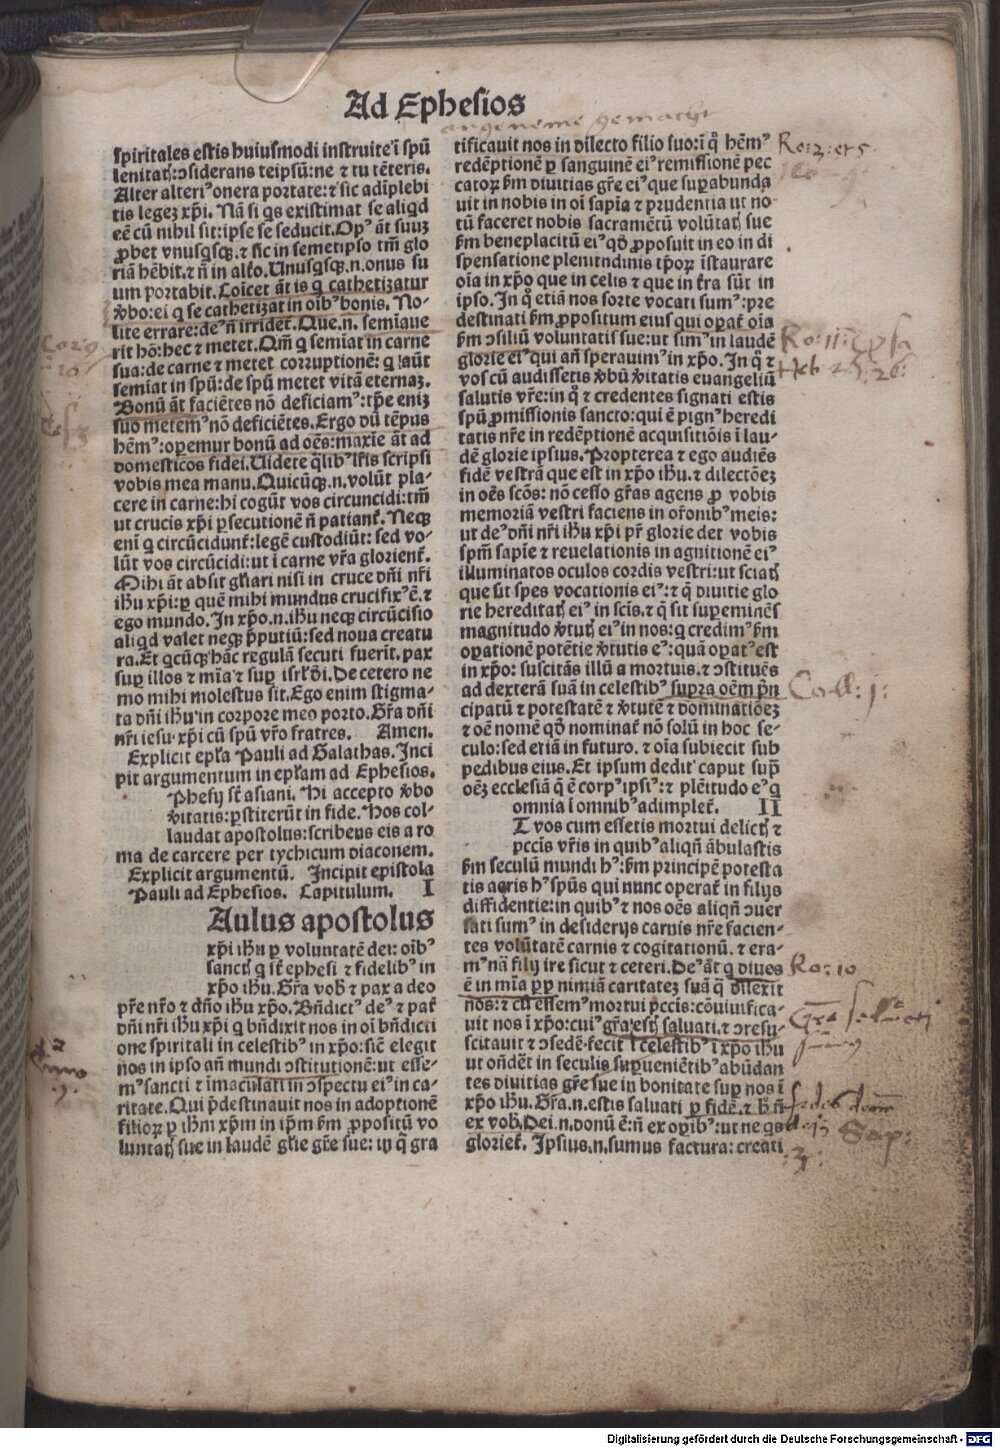 Ad Ephesios
angeneme gemacht
spiritales estis huiusmodi instruite ī spū
lenitatꝭ: ↄsiderans teipsū: ne ⁊ tu tēteris.
Alter alteriꝰ onera portate: ⁊ sic adīplebi
tis legeꝫ xp̄i. Nā si qs existimat se aliqd
eē cū nihil sit: ipse se seducit. Opꝰ āt suuꝫ
ꝓbet vnusqsqꝫ. ⁊ sic in semetipso tm̄ glo
riā hēbit. ⁊ n̄ in alt̄o. Unusqsqꝫ .n. onus su
um portabit. Cōicet āt is q cathetizatur
v̄bo: ei q se cathetizat in oībꝰ bonis. No-
lite errare: deꝰ n̄ irridet̄. Que .n. semīaue
rit hō: hec ⁊ metet. Qm̄ q semiat in carne
sua: de carne ⁊ metet corruptionē: q aūt
semiat in spū: de spū metet vitā eternaꝫ.
Bonū āt faciētes nō deficiamꝰ: tp̄e eniꝫ
suo metemꝰ nō deficiētes. Ergo dū tēpus
hēmꝰ: operemur bonū ad oēs: maxīe āt ad
domesticos fidei. Uidete qlibꝰ lr̄is scripsi
vobis mea manu. Quicūqꝫ .n. volūt pla-
cere in carne: hi cogūt vos circuncidi: tm̄
ut crucis xp̄i ꝑsecutionē n̄ patiant̄. Neqꝫ
enī q circūcidunt̄: legē custodiūt: sed vo-
lūt vos circūcidi: ut ī carne vr̄a glorient̄.
Mihi āt absit gl̄iari nisi in cruce dn̄i nr̄i
ih̄u xp̄i: ꝑ quē mihi mundus crucifixꝰ ē. ⁊
ego mundo. In xp̄o .n. ih̄u neqꝫ circūcisio
aliqd valet neqꝫ p̄putiū: sed noua creatu
ra. Et qcūqꝫ hāc regulā secuti fuerīt. pax
suꝑ illos ⁊ mīa ⁊ suꝑ isrl̄ dei. De cetero ne
mo mihi molestus sit. Ego enim stigma-
ta dn̄i ih̄u in corpore meo porto. Gr̄a dn̄i
nr̄i iesu xp̄i cū spū vr̄o fratres. Amen.
Explicit epl̄a Pauli ad Galathas. Inci
pit argumentum in epl̄am ad Ephesios.
Phesij st̄ asiani. Hi accepto v̄bo
v̄itatis: ꝑstiterūt in fide. Hos col-
laudat apostolus: scribens eis a ro
ma de carcere per tychicum diaconem.
Explicit argumentū. Incipit epistola
Pauli ad Ephesios. Capitulum. I
Aulus apostolus
xp̄i ih̄u ꝑ voluntatē dei: oībꝰ
sanctꝭ q st̄ ephesi ⁊ fidelibꝰ in
xp̄o ih̄u. Gr̄a vobꝭ ⁊ pax a deo
pr̄e nr̄o ⁊ dn̄o ih̄u xp̄o. Bn̄dictꝰ deꝰ ⁊ pat̄
dn̄i nr̄i ih̄u xp̄i q bn̄dixit nos in oī bn̄dicti
one spiritali in celestibꝰ in xp̄o: sic̄ elegit
nos in ipso an̄ mundi ↄstitutionē: ut esse-
mꝰ sancti ⁊ īmaculati in ↄspectu eiꝰ in ca-
ritate. Qui p̄destinauit nos in adoptionē
filioꝝ ꝑ ih̄m xp̄m in ip̄m ẜm ꝓpositū vo
luntatꝭ sue in laudē gl̄ie gr̄e sue: in q gra
tificauit nos in dilecto filio suo: ī q̊ hēmꝰ
redēptionē ꝑ sanguinē eiꝰ remissionē pec
catoꝝ ẜm diuitias gr̄e eiꝰ que suꝑabunda
uit in nobis in oī sapīa ⁊ prudentia ut no
tū faceret nobis sacramētū volūtatꝭ sue
ẜm beneplacitū eiꝰ qd̄ ꝓposuit in eo in di
spensatione plenitudinis tp̄oꝝ īstaurare
oīa in xp̄o que in celis ⁊ que in t̄ra sūt in
ipso. In q̊ etiā nos sorte vocati sumꝰ: pre
destinati ẜm ꝓpositum eius qui oꝑat̄ oīa
ẜm ↄsiliū voluntatis sue: ut simꝰ in laudē
glorie eiꝰ qui an̄ sperauimꝰ in xp̄o. In q̊ ⁊
vos cū audissetis v̄bū v̄itatis euangeliū
salutis vr̄e: in q̊ ⁊ credentes signati estis
spū ꝓmissionis sancto: qui ē pignꝰ heredi
tatis nr̄e in redēptionē acquisitiōis ī lau-
dē glorie ipsius. Propterea ⁊ ego audiēs
fidē vestrā que est in xp̄o ih̄u. ⁊ dilectōeꝫ
in oēs scōs: nō cesso gr̄as agens ꝓ vobis
memoriā vestri faciens in or̄onibꝰ meis:
ut deꝰ dn̄i nr̄i ih̄u xp̄i pr̄ glorie det vobis
spm̄ sapīe ⁊ reuelationis in agnitionē eiꝰ
illuminatos oculos cordis vestri: ut sciatꝭ
que sit spes vocationis eiꝰ: ⁊ q diuitie glo
rie hereditatꝭ eiꝰ in scīs. ⁊ q̄ sit suꝑeminēs
magnitudo v̄tutꝭ eiꝰ in nos: q credimꝰ ẜm
oꝑationē potētie v̄tutis eꝰ: quā oꝑatꝰ est
in xp̄o: suscitās illū a mortuis. ⁊ ↄstituēs
ad dexterā suā in celestibꝰ supra oēm p̄n
cipatū ⁊ potestatē ⁊ v̄tutē ⁊ dominatiōeꝫ
⁊ oē nomē qd̄ nominat̄ nō solū in hoc se-
culo: sed etiā in futuro. ⁊ oīa subiecit sub
pedibus eius. Et ipsum dedit caput sup̄
oēꝫ ecclesiā q̄ ē corpꝰ ipsiꝰ: ⁊ plēitudo eꝰ q
omnia ī omnibꝰ adimplet̄. II
T vos cum essetis mortui delictꝭ ⁊
pcc̄is vr̄is in quibꝰ aliqn̄ ābulastis
ẜm seculū mundi hꝰ: ẜm principē potesta
tis aeris hꝰ spūs qui nunc operat̄ in filijs
diffidentie: in quibꝰ ⁊ nos oēs aliqn̄ ↄuer
sati sumꝰ in desiderijs carnis nr̄e facien-
tes volūtatē carnis ⁊ cogitationū. ⁊ era-
mꝰ nā filij ire sicut ⁊ ceteri. Deꝰ āt q diues
ē in mīa ꝓꝑ nimiā caritateꝫ suā q̄ dilexit
nos: ⁊ cū essemꝰ mortui pcc̄is: cōuiuifica-
uit nos ī xp̄o: cuiꝰ gr̄a estꝭ saluati. ⁊ ↄresu-
scitauit ⁊ ↄsedē fecit ī celestibꝰ ī xp̄o ih̄u
ut on̄det in seculis suꝑueniētibꝰ abūdan
tes diuitias gr̄e sue in bonitate suꝑ nos ī
xp̄o ih̄u. Gr̄a .n. estis saluati ꝑ fidē. ⁊ h̄ n̄
ex vobꝭ. Dei .n. donū ē: n̄ ex oꝑibꝰ: ut ne qs
gloriet̄. Ipsius .n. sumus factura: creati
Ro: 3: et 5.
Ro: 11: Ep̄sa
Heb
Coll: 1:
Ro: 10
Sap:
Digitalisierung gefördert durch die Deutsche Forschungsgemeinschaft - DFG